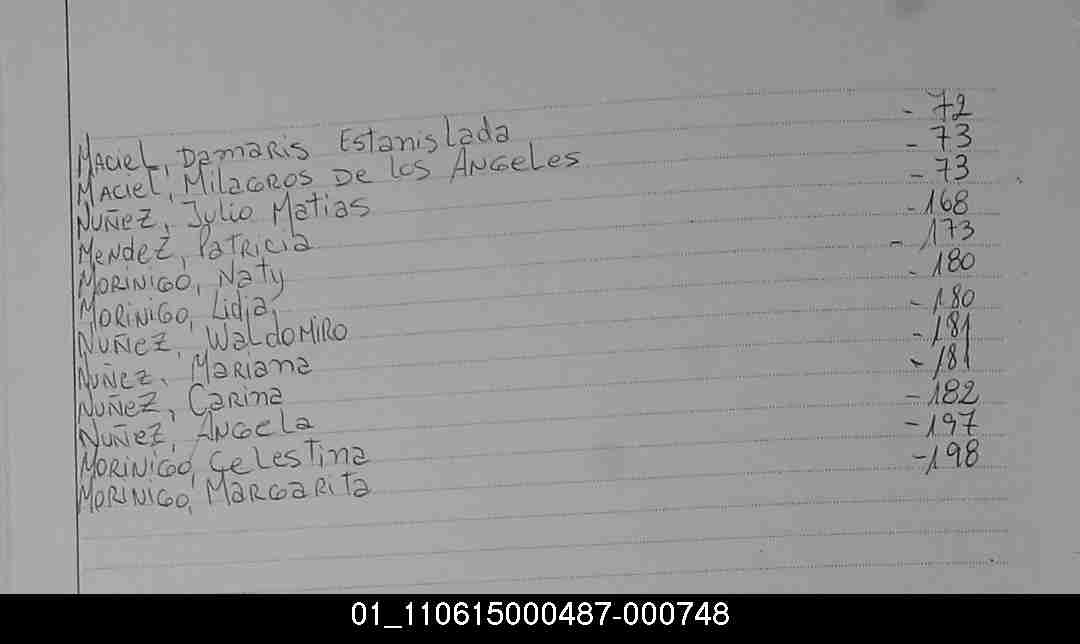 Maciel, Damaris Estanislada - 72
Maciel, Milagros De los Angeles - 73
Nuñez, Julio Matias - 73
Mendez, Patricia - 168
Morinigo, Naty - 173
Morinigo, Lidia - 180
Nuñez, Waldomiro - 180
Nuñez, Mariana - 181
Nuñez, Carina - 181
Nuñez, Angela - 182
Morinigo, Celestina - 197
Morinigo, Margarita - 198
01_110615000487-000748